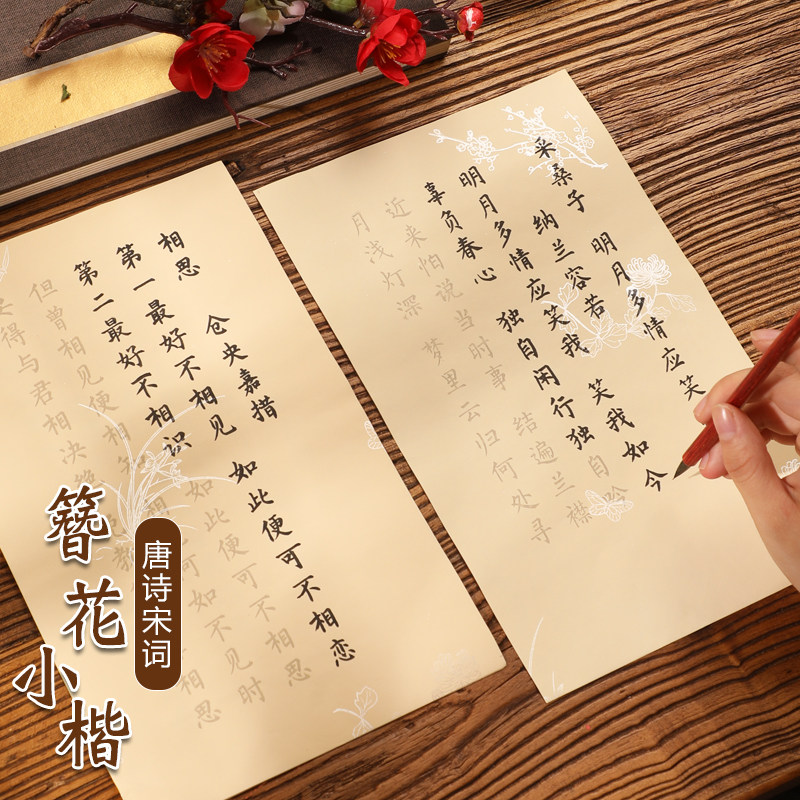 采桑子 明月多情应笑
纳兰容若
明月多情应笑我 笑我如今
辜负春心 独自闲行独自吟
近来怕说当时事 结遍兰襟
月浅灯深 梦里云归何处寻
相思 仓央嘉措
第一最好不相见 如此便可不相恋
第二最好不相识 如此便可不相思
但曾相见便相 何如不见时
得与君相决绝 教 相思
簪花小楷
唐诗宋词